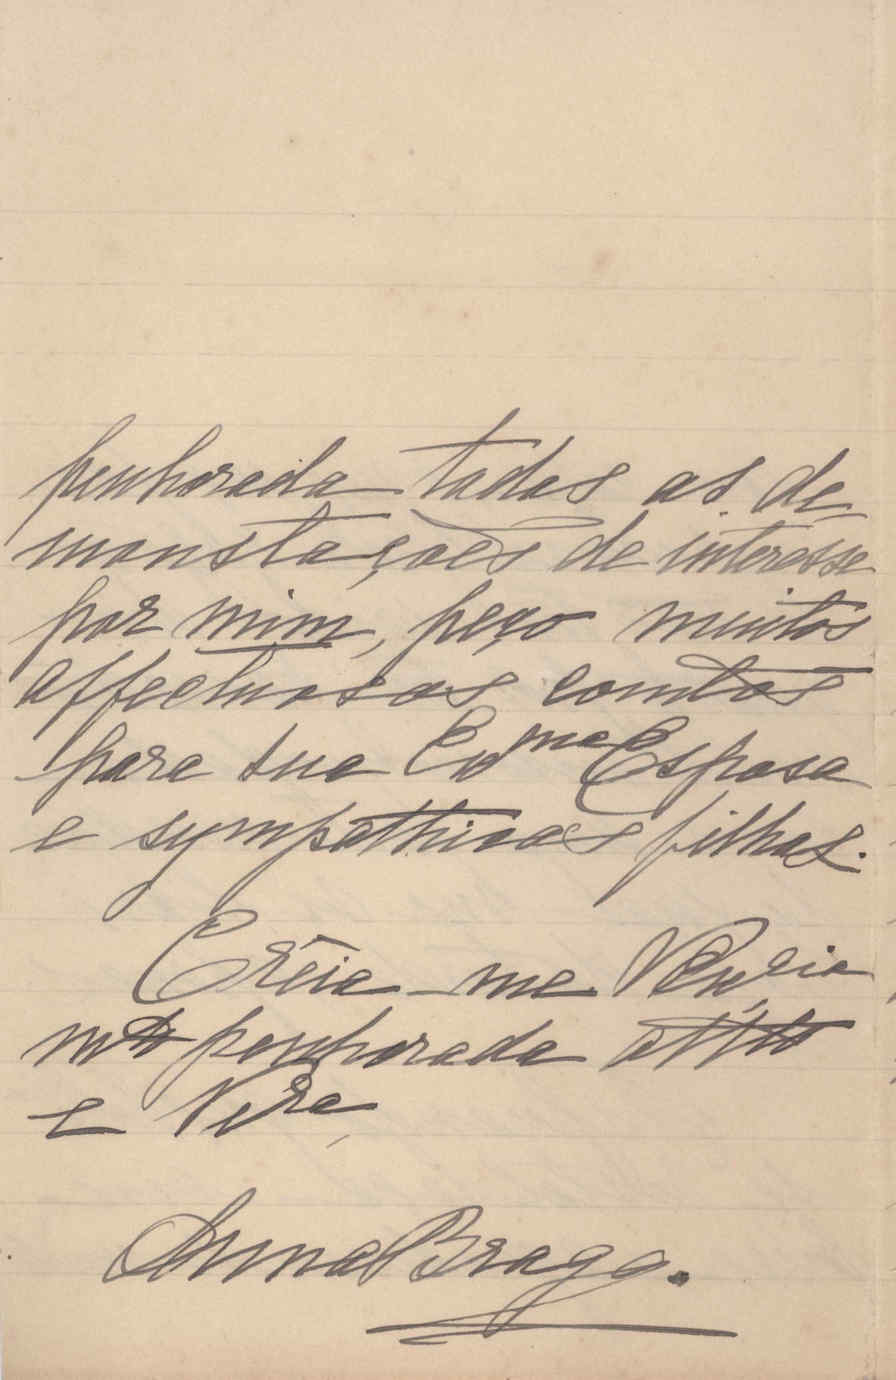 penhorada todas as de-
monstações de interesse
por mim, peço muitos
affectuosos comptos
para sua Exma Esposa
e sympathicas filhas.
Creia-me Venr.
mto penhorada attta
e Vera
Anna Braga.